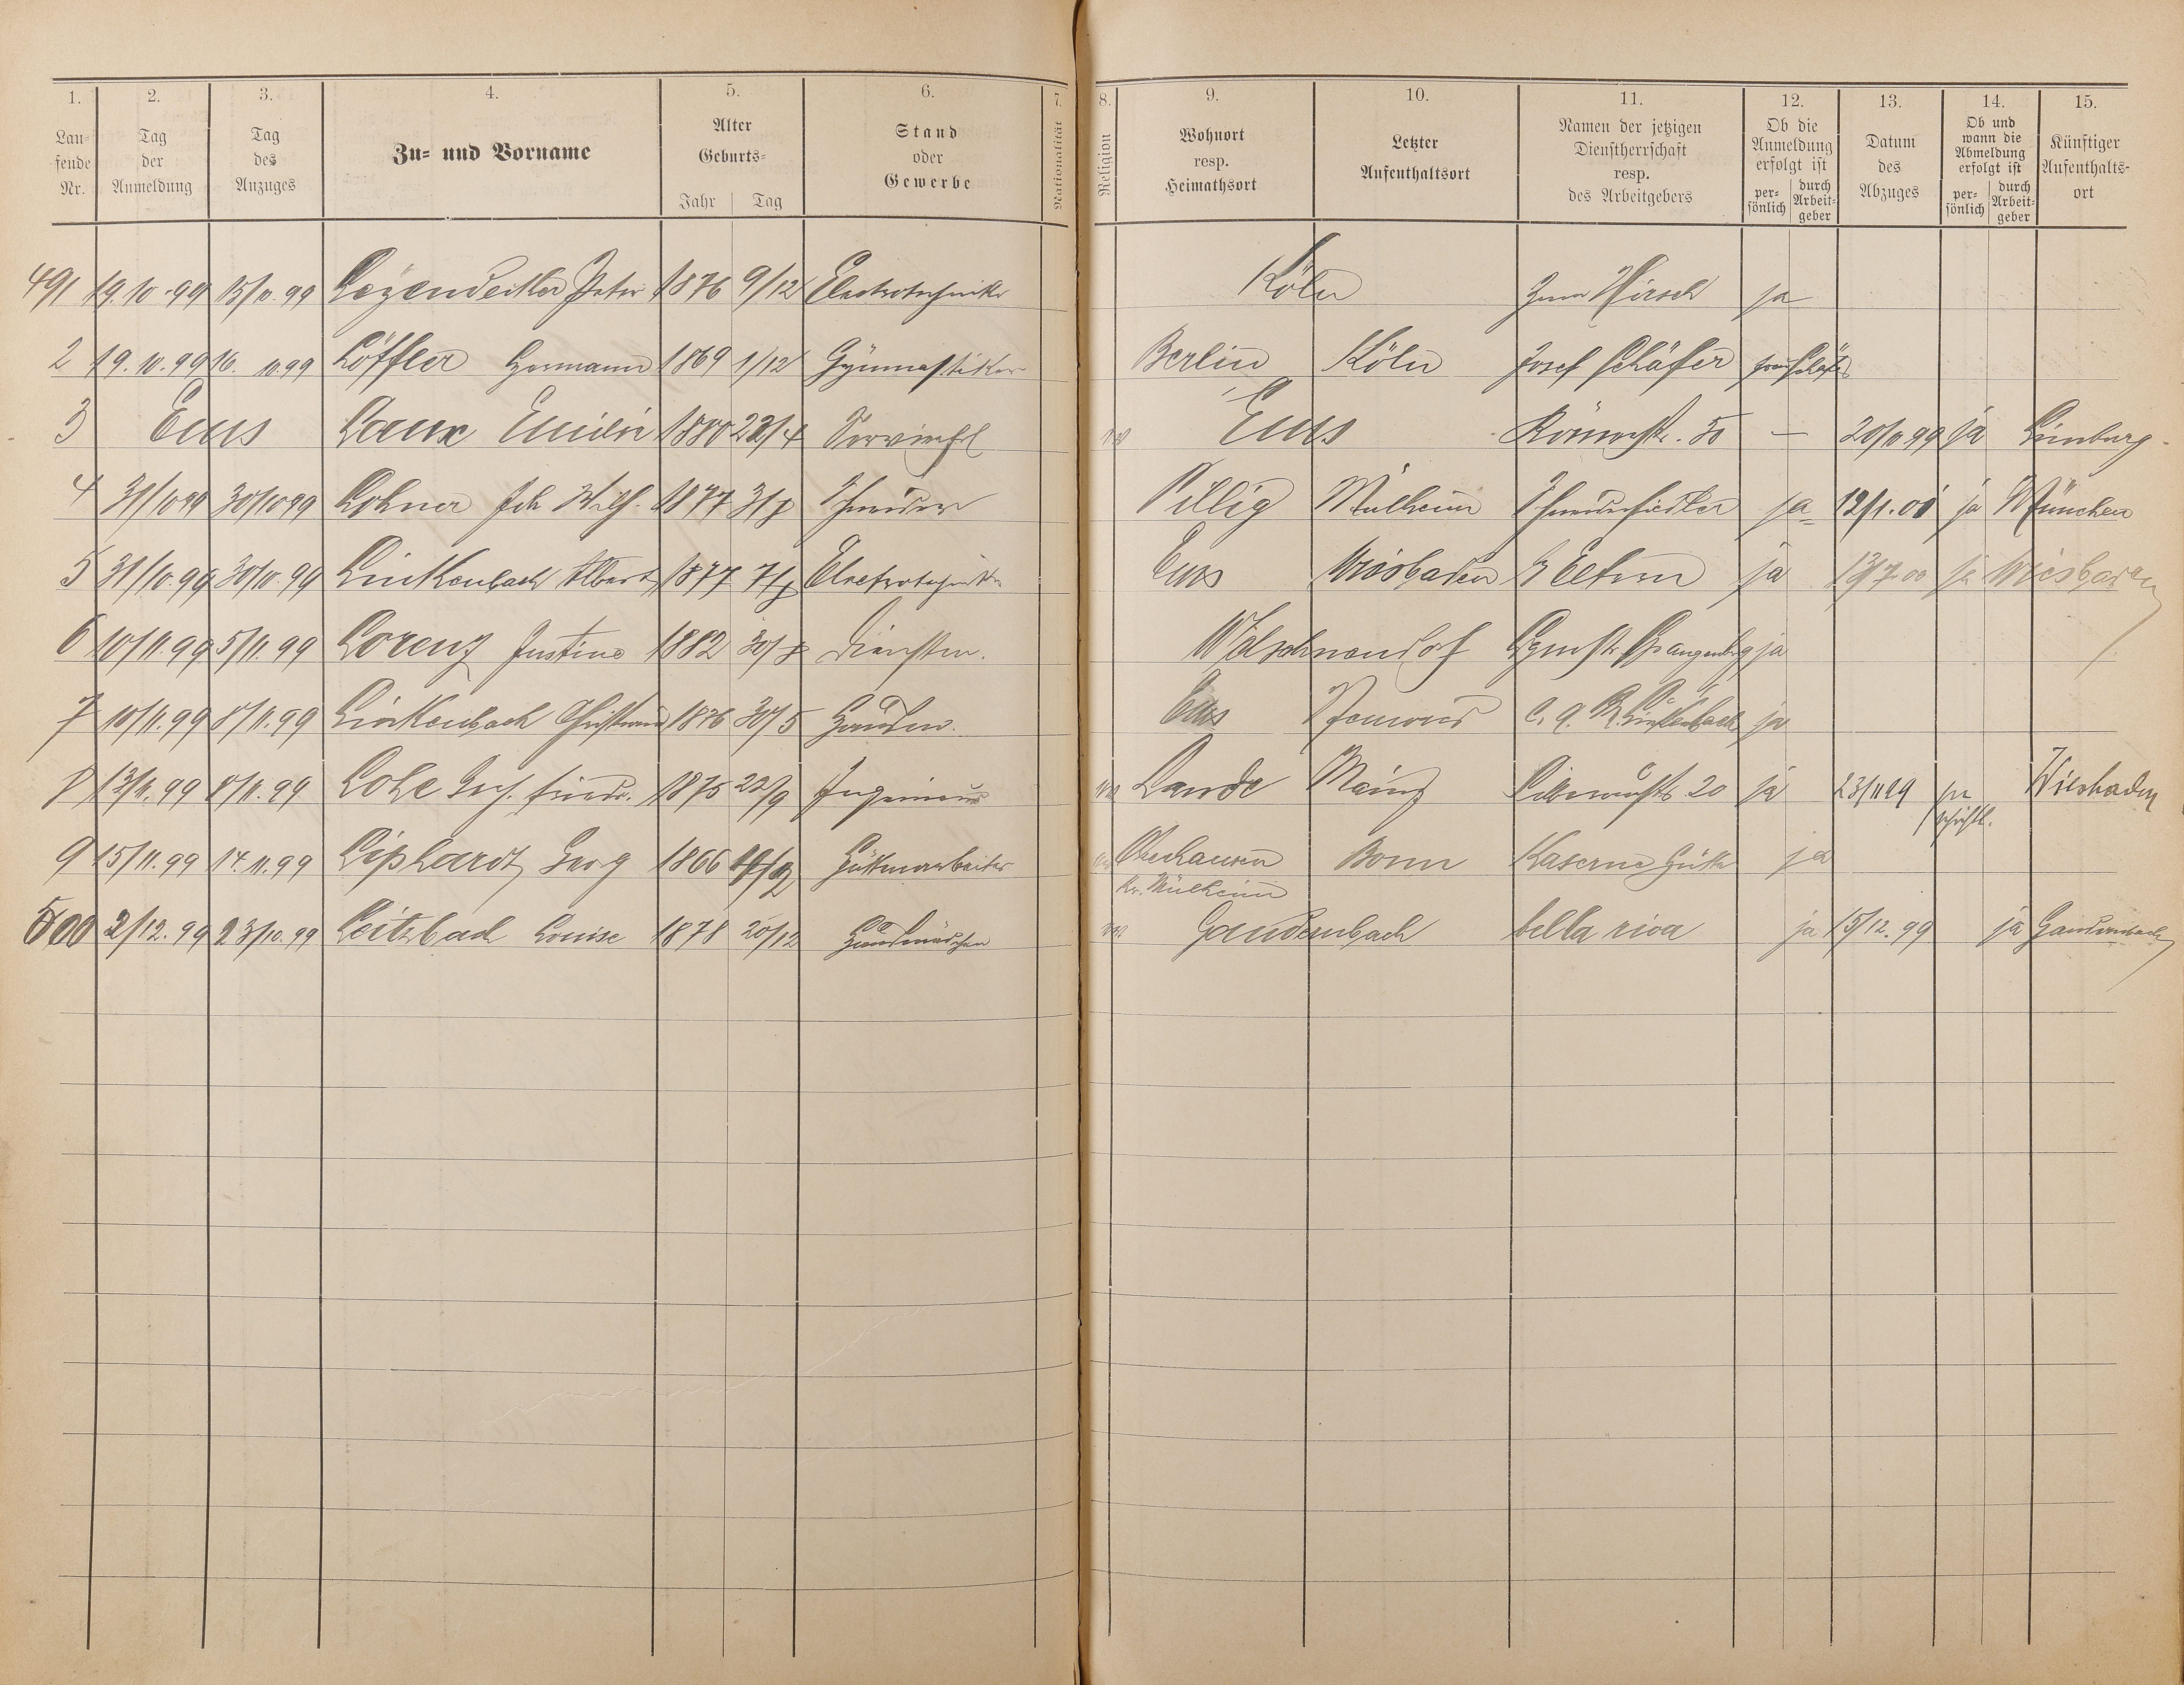 1. 2. 3. 4. 5. 6. 7. 8. 9. 10. 11. 12. 13. 14. 15.
Laufende Nr. Tag der Anmeldung Tag des Anzuges Zu- und Vorname Alter Geburts- Jahr Tag Stand oder Gewerbe Nationalität Religion Wohnort resp. Heimathsort Letzter Aufenthaltsort Namen der jetzigen Dienstherrschaft resp. des Arbeitgebers Ob die Anmeldung erfolgt ist persönlich durch Arbeitgeber Datum des Abzuges Ob und wann die Abmeldung erfolgt ist persönlich durch Arbeitgeber Künftiger Aufenthaltsort
491 19.10.99 Peter 1876 9/12 Electrotechniker Köln Zum Hirsch ja
2 19.10.99 16. 10.99 Löffler Hermann 1869 1/12 Gymnastiker Berlin Köln Josef Schäfer
3 Ems Laux Emilie 1880 22/4 Ems Römerstr. 50 — 20/11 99 ja Limburg
4 31/10 99 30/10 99 Lohner Joh Wilh. 1877 Schneider Pillig Mülheim ja 12/1.00 ja München
5 31/10.99 30/10.99 Linkenbach Albert 1877 Electrotechniker Ems Wiesbaden ja ja Wiesbaden
6 10/11.99 5/11.99 Lorenz Justine 1882 Dienstm. ja
7 10/11.99 8/11.99 Linkenbach 1876 30/5 Ems Neuwied ja
8 13/11.99 8/11.99 Lohe 1875 Ingenieur Mainz 20 ja 23/11 99 Wiesbaden
schriftl.
9 15/11.99 14.11.99 Liphardt Georg 1866 Hüttenarbeiter Oberhausen Bonn Kaserne Hütte ja
Kr. Mülheim
500 2/12.99 23/10.99 Leitzbach Louise 1878 20/12 Hausmädchen Gaudernbach bella riva ja 15/12.99 ja Gaudernbach